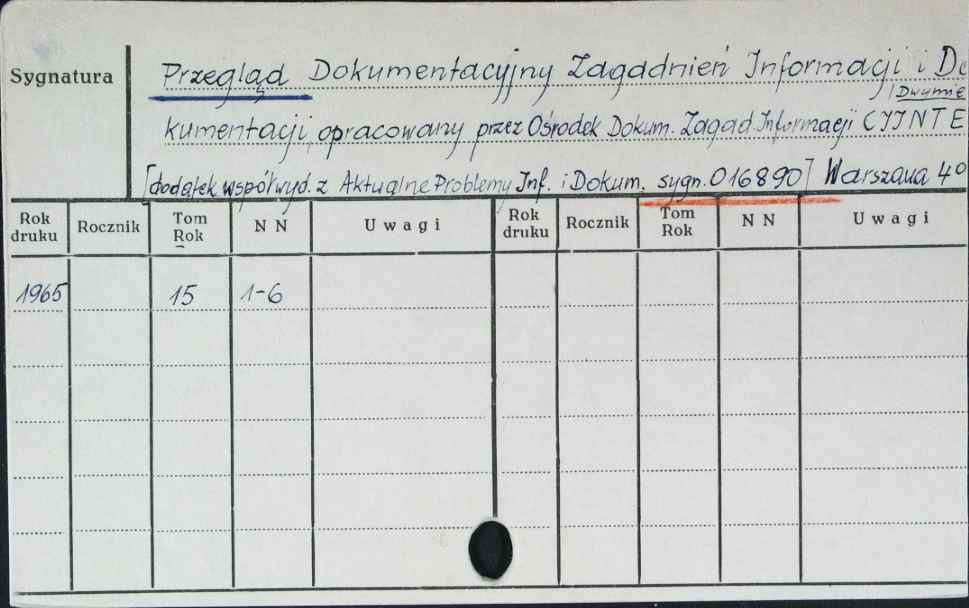 Sygnatura
Przegląd Dokumentacyjny Zagadnień Informacji i Do
Dwumie
kumentacji, opracowany przez Ośrodek Dokum. Zagad. Informacji CIINTE
[dodatek współwyd. z Aktualne Problemy Inf. i Dokum. sygn. 016890] Warszawa 4°
Rok druku Rocznik Tom Rok NN Uwagi Rok druku Rocznik Tom Rok NN Uwagi
1965 15 1-6